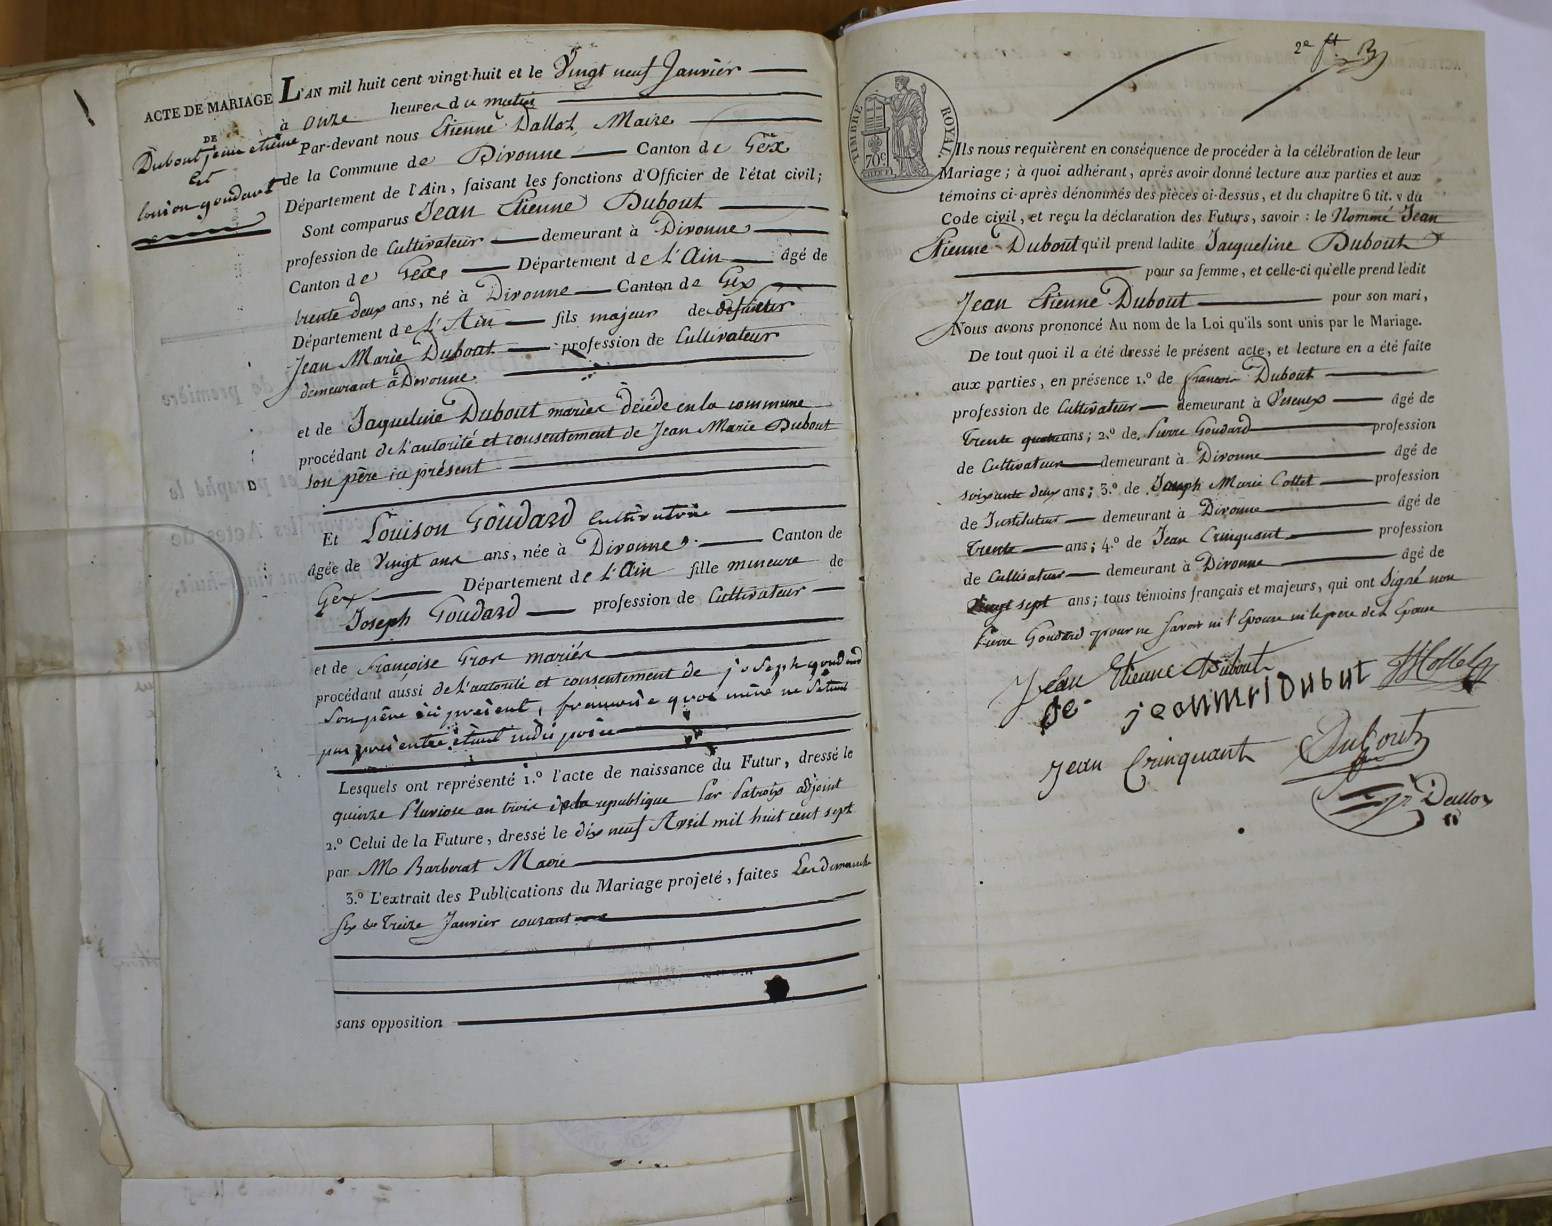 ACTE DE MARIAGE
DE
Dubout jean etienne
Et
louison goudard
L'AN mil huit cent vingt-huit et le Vingt neuf Janvier
à Onze heures du matin
Par-devant nous Etienne Dalloz, Maire
de la Commune de Divonne Canton de Gex
Département de l'Ain, faisant les fonctions d'Officier de l'état civil;
Sont comparus Jean Etienne Dubout
profession de Cultivateur demeurant à Divonne
Canton de Gex Département de L'Ain âgé de
trente deux ans, né à Divonne Canton de Gex
Département de L'Ain fils majeur de
Jean Marie Dubout profession de Cultivateur
demeurant à Divonne
et de Jaqueline Dubout mariés décédé en la commune
procédant de l'autorité et consentement de Jean Marie Dubout
son père ici présent
Et Louison Goudard Cultivatrice
âgée de Vingt ans ans, née à Divonne Canton de
Gex Département de L'Ain fille mineure de
Joseph Goudard profession de Cultivateur
et de Françoise Gros mariés
procédant aussi de l'autorité et consentement de joseph goudard
Son père ici présent, francoise gros mère ne S'etant
pas presentée étant indisposée
Lesquels ont représenté 1.º l'acte de naissance du Futur, dressé le
quinze Pluviose an trois de la republique Par Patroix adjoint
2.º Celui de la Future, dressé le dix neuf Avril mil huit cent sept
par M Barberat Maire
3.º L'extrait des Publications du Mariage projeté, faites Les Dimanche
Six & Treize Janvier courant
sans opposition
2e ft
TIMBRE ROYAL
70c
Ils nous requièrent en conséquence de procéder à la célébration de leur
Mariage; à quoi adhérant, après avoir donné lecture aux parties et aux
témoins ci-après dénommés des pièces ci-dessus, et du chapitre 6 tit. v du
Code civil, et reçu la déclaration des Futurs, savoir: le Nommé Jean
Etienne Dubout qu'il prend ladite Jacqueline Dubout
pour sa femme, et celle-ci qu'elle prend ledit
Jean Etienne Dubout pour son mari,
Nous avons prononcé Au nom de la Loi qu'ils sont unis par le Mariage.
De tout quoi il a été dressé le présent acte, et lecture en a été faite
aux parties, en présence 1.º de françois Dubout
profession de Cultivateur demeurant à Vesenex âgé de
Trente quatre ans; 2.º de Pierre Goudard profession
de Cultivateur demeurant à Divonne âgé de
soixante deux ans; 3.º de Joseph Marie Collet profession
de Instituteur demeurant à Divonne âgé de
Trente ans; 4.º de Jean Crinquant profession
de Cultivateur demeurant à Divonne âgé de
Vingt sept ans; tous témoins français et majeurs, qui ont Signé non
Pierre Goudard pour ne savoir ni l'Epouse ni le pere de l'Epouse
Jean Etienne Dubout
Je
jeanmri Dubut
JMCollet
Jean Crinquant
Dubout
Dalloz